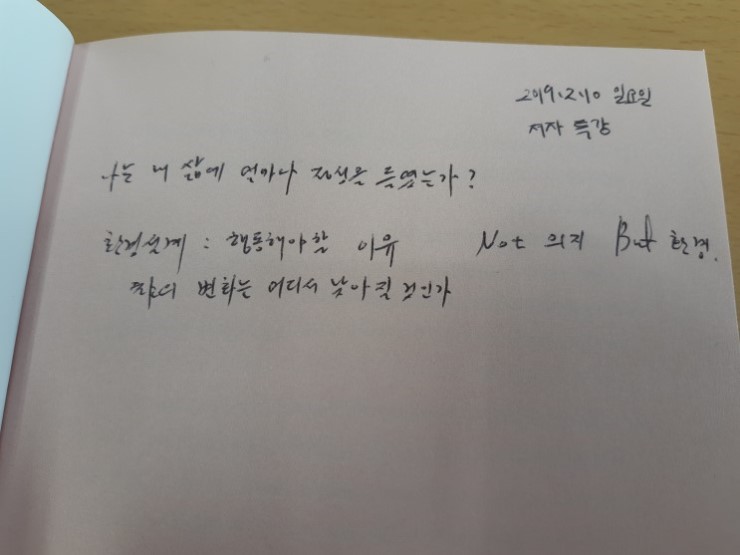 2019.2.10 일요일
저자 특강
나는 내 삶에 얼마나 정성을 들였는가?
환경설계 : 행동해야할 이유 Not 의지 But 환경.
변화는 어디서 낮아질 것인가